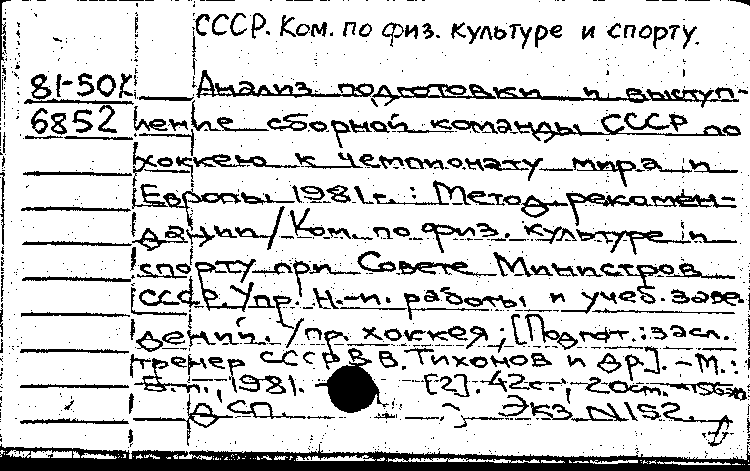 СССР. Ком. по физ. культуре и спорту.
81-50К Анализ подготовки и выступ-
6852 ление сборной команды СССР по
хоккею к чемпионату мира и
Европы 1981 г. : Метод. рекамен-
дации / Ком. по физ. культуре и
спорту при Совете Министров
СССР. Упр. Н.-и. работы и учеб. заве-
дений. Упр. хоккея ; [Подгот. : засл.
тренер СССР В В. Тихонов и др.]. - М. :
Б. и., 1981. - [2]. 42 с. ; 20 см. -
ДСП. Экз N 152.